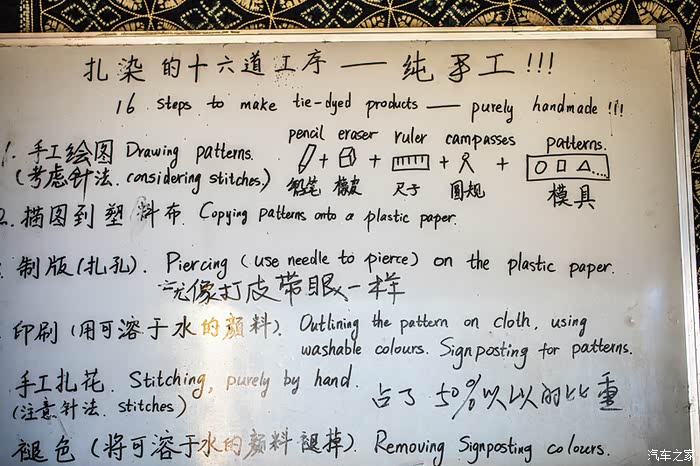 扎染的十六道工序 —— 纯手工!!!
16 steps to make tie-dyed products —— purely handmade !!!
pencil eraser ruler campasses patterns.
1. 手工绘图 Drawing patterns. + + + +
(考虑针法. considering stitches.) 铅笔 橡皮 尺子 圆规 模具
2. 描图到塑料布. Copying patterns onto a plastic paper.
制版(扎孔). Piercing (use needle to pierce) on the plastic paper.
像打皮带眼一样
印刷(用可溶于水的颜料). Outlining the pattern on cloth, using
washable colours. Signposting for patterns.
手工扎花. Stitching, purely by hand.
(注意针法. stitches) 占了50%以以的比重
褪色(将可溶于水的颜料褪掉). Removing Signposting colours.
汽车之家